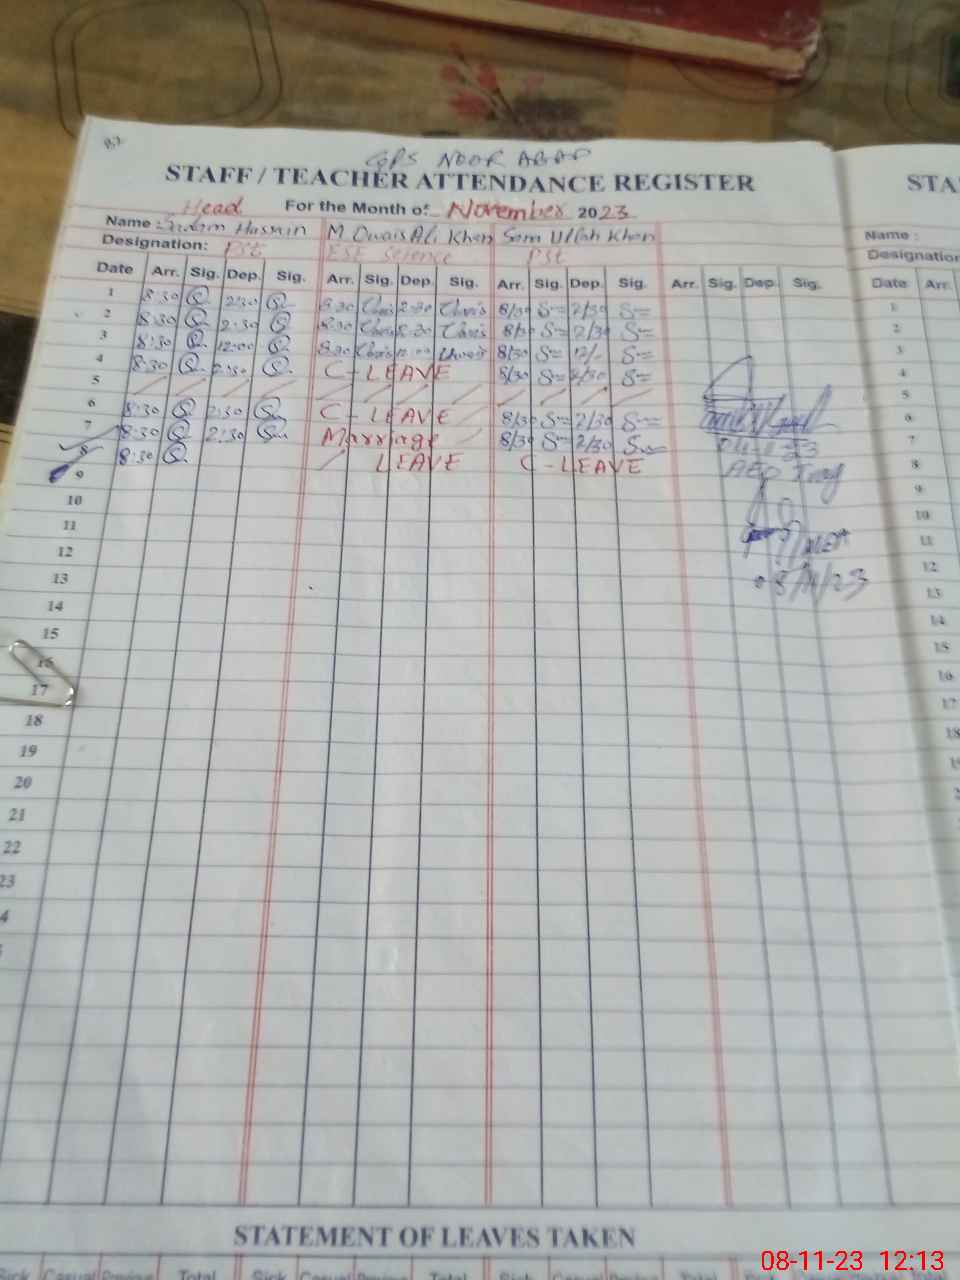 GPS NOOR ABAD
STAFF / TEACHER ATTENDANCE REGISTER
STA
Head For the Month of November 2023
Name : Hasnain M Owais Ali Khan Sami Ullah Khan
Name :
Designation: PST EST Science PST
Designation
Date Arr. Sig. Dep. Sig. Arr. Sig. Dep. Sig. Arr. Sig. Dep. Sig. Arr. Sig. Dep. Sig.
Date Arr.
1 8:30 2:30 8:30 Owais 2:30 Owais 8/30 2/30
1
2 8:30 2:30 8:30 Owais 2:30 Owais 8/30 2/30
2
3 8:30 12:00 8:30 Owais 12:00 Owais 8/30 12/-
3
4 8:30 2:30 C - LEAVE 8/30 2/30
4
5
5
6 8:30 2:30 C - LEAVE 8/30 2/30
6
7 8:30 2:30 Marriage 8/30 2/30
7
8 8:30 LEAVE C - LEAVE
8
AEO
9
9
10
10
11
11
12
12
08/11/23
13
13
14
14
15
15
16
16
17
17
18
18
19
20
21
22
23
STATEMENT OF LEAVES TAKEN
Sick Casual Total Sick Casual Total Sick Casual Total
08-11-23 12:13